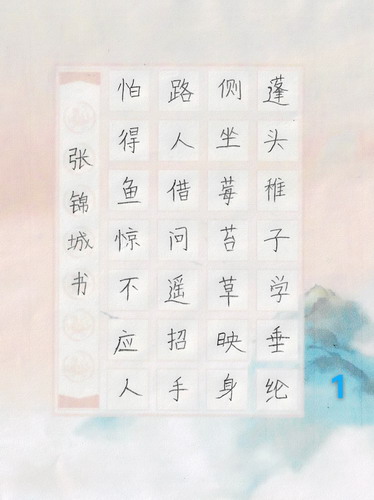 蓬头稚子学垂纶
侧坐莓苔草映身
路人借问遥招手
怕得鱼惊不应人
张锦城书
1